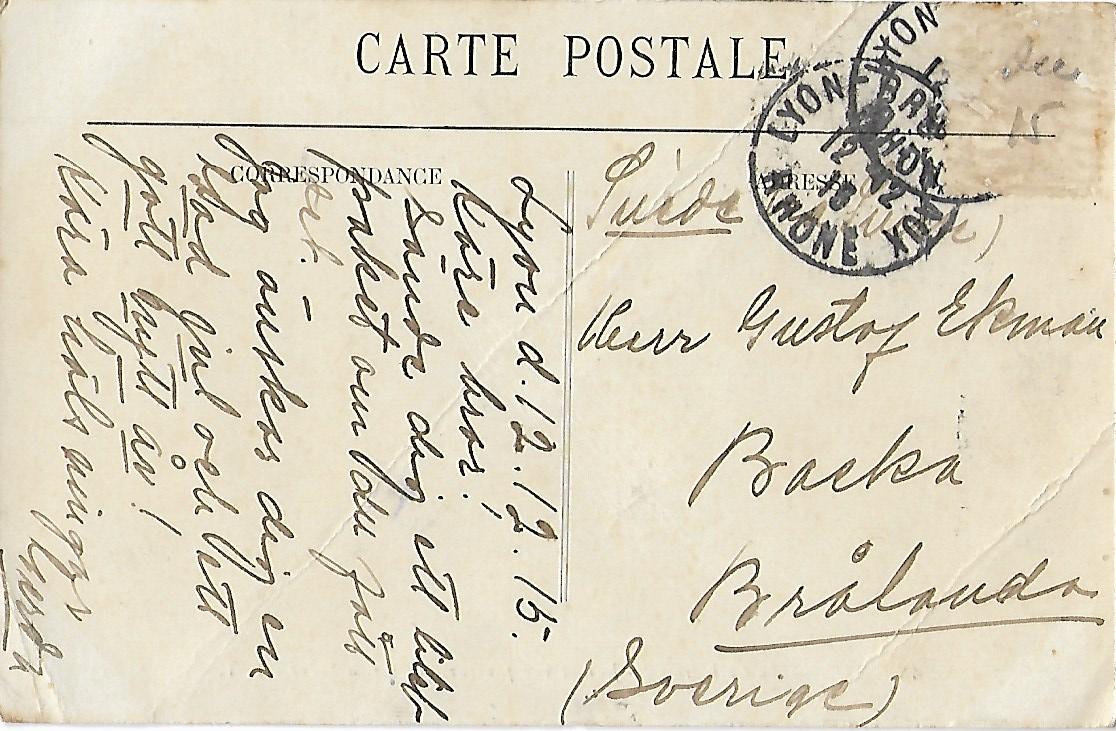 CARTE POSTALE
CORRESPONDANCE
ADRESSE
LYON
RHONE
dec
15
Lyon d. 12.12.15.
Käre bror!
Sände dig ett litet
paket om du fått
det. –
Jag önskar dig en
God Jul och Ett
gott nytt år!
Kära hälsningar
Suède
Herr Gustof Ekman
Backa
Brålanda
(Sverige)